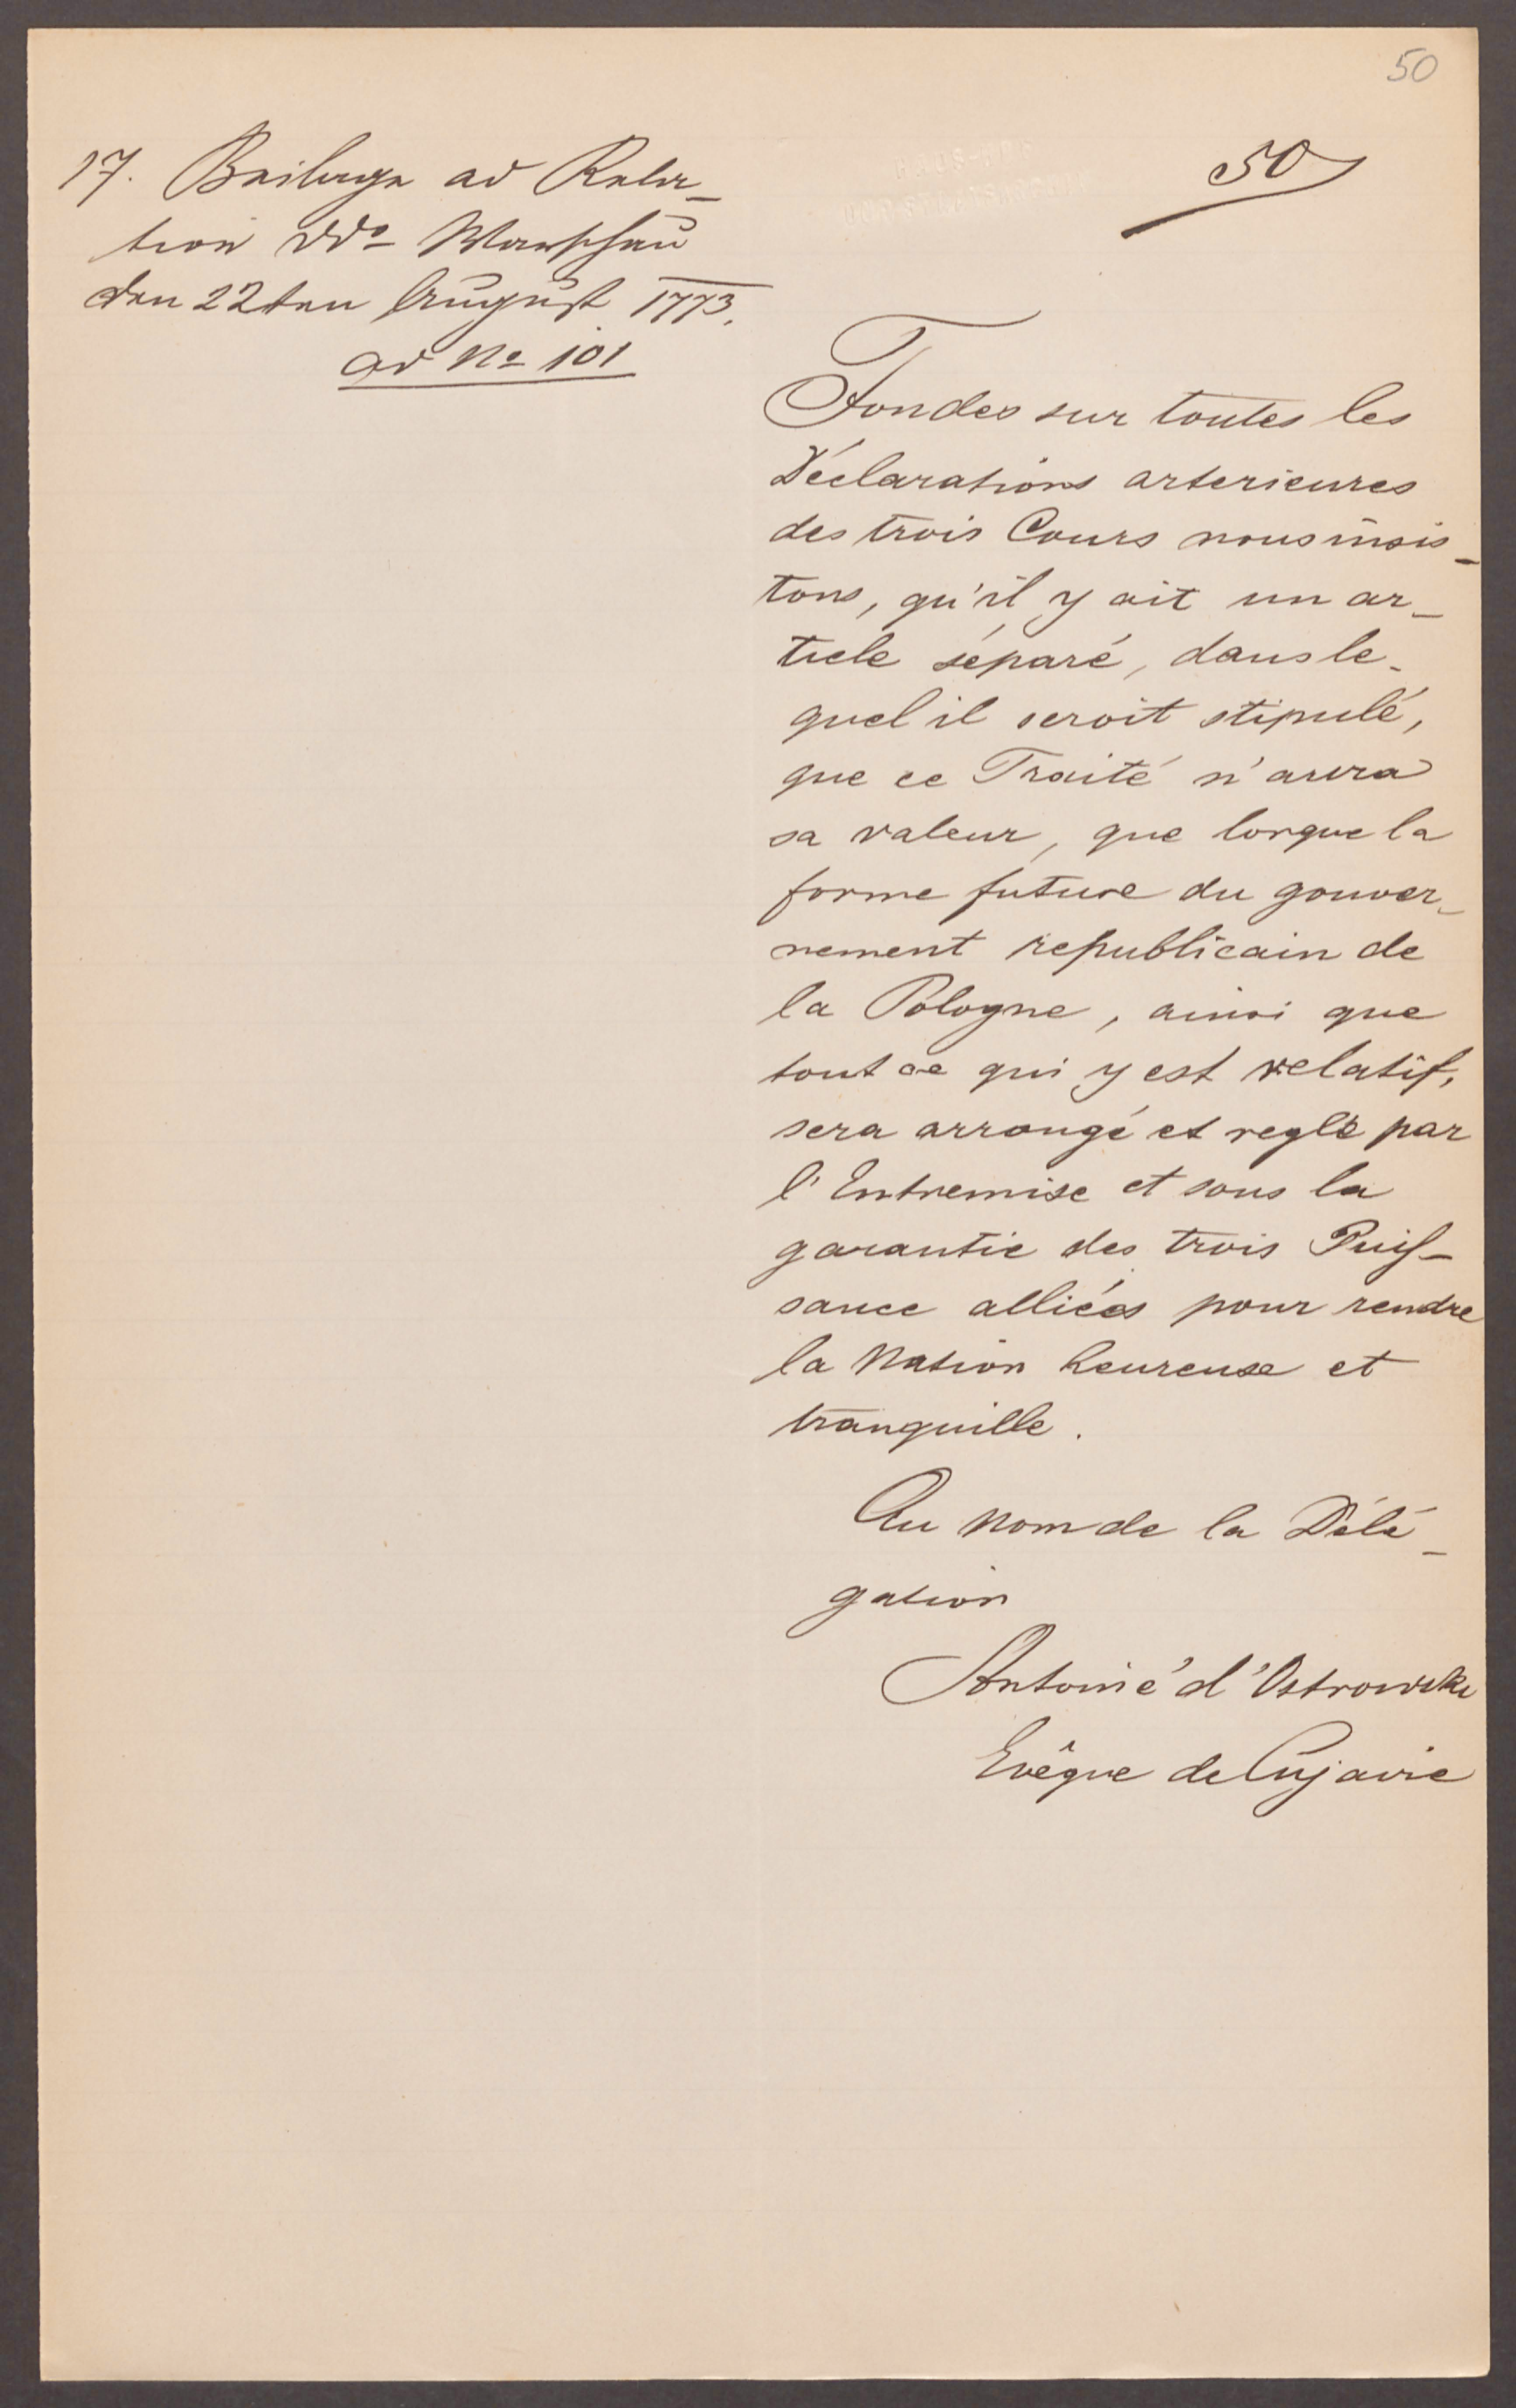 50
50
17. Beilage ad Rela-
tion ddo Warschau
den 22ten August 1773.
ad No 101
Fondes sur toutes les
Déclarations arterieures
des trois Cours nous insis-
tons, qu'il y ait un ar-
ticle séparé, dans le-
quel il seroit stipulé,
que ce Traité n'aura
sa valeur, que lorque la
forme future du gouver-
nement republicain de
la Pologne, ainsi que
tout ce qui y est relatif,
sera arrangé et reglé par
l'Entremise et sous la
garantie des trois Puis-
sance alliées pour rendre
la Nation heureuse et
tranquille.
Au nom de la Délé-
gation
Antoine d'Ostrowski
Evêque de Cujavie